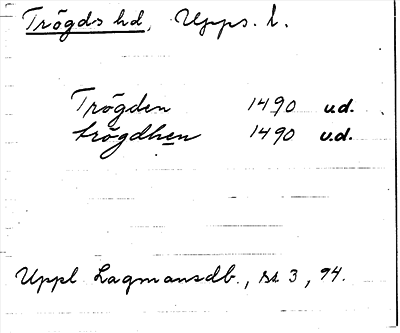 Trögds hd, Upps. l.
Trögden 1490 u.d.
trögdhen 1490 u.d.
Uppl. Lagmansdb., s. 3, 94.